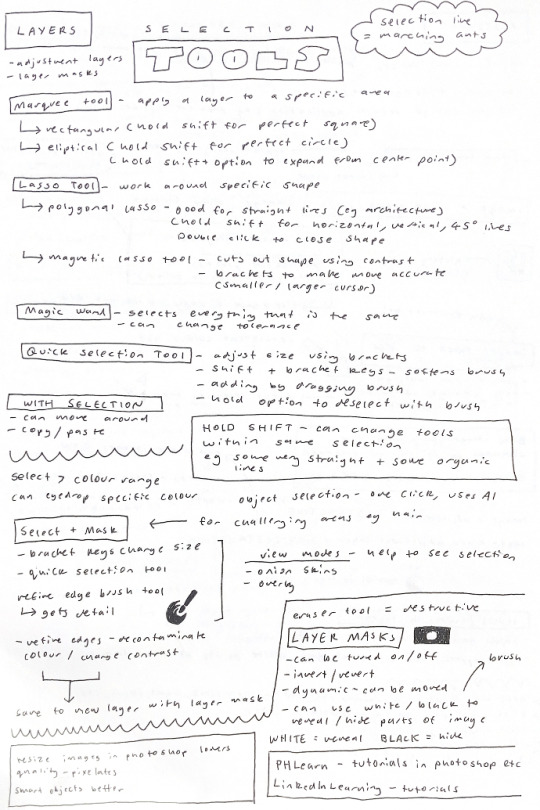 LAYERS
- adjustment layers
- layer masks
SELECTION
TOOLS
selection line
= marching ants
Marquee tool - apply a layer to a specific area
↳ rectangular (hold shift for perfect square)
↳ eliptical (hold shift for perfect circle)
(hold shift + option to expand from center point)
Lasso Tool - work around specific shape
↳ polygonal lasso - good for straight lines (eg architecture)
(hold shift for horizontal, vertical, 45° lines
Double click to close shape
↳ magnetic lasso tool - cuts out shape using contrast
- brackets to make more accurate
(smaller / larger cursor)
Magic wand - selects everything that is the same
- can change tolerance
Quick Selection Tool - adjust size using brackets
- shift + bracket keys - softens brush
- adding by dragging brush
- hold option to deselect with brush
WITH SELECTION
- can move around
- copy / paste
HOLD SHIFT - can change tools
within same selection
eg some very straight + some organic
lines
select > colour range
can eyedrop specific colour
object selection - one click, uses AI
Select + Mask ← for challenging areas eg hair
- bracket keys change size
- quick selection tool
refine edge brush tool
↳ gets detail
- refine edges - decontaminate
colour / change contrast
save to new layer with layer mask
view modes - help to see selection
- onion skins
- overlay
eraser tool = destructive
LAYER MASKS
- can be turned on/off
- invert / revert
- dynamic - can be moved
- can use white / black to
reveal / hide parts of image
brush
WHITE = reveal BLACK = hide
resize images in photoshop lowers
quality - pixelates
smart objects better
PHLearn - tutorials in photoshop etc
LinkedIn Learning - tutorials